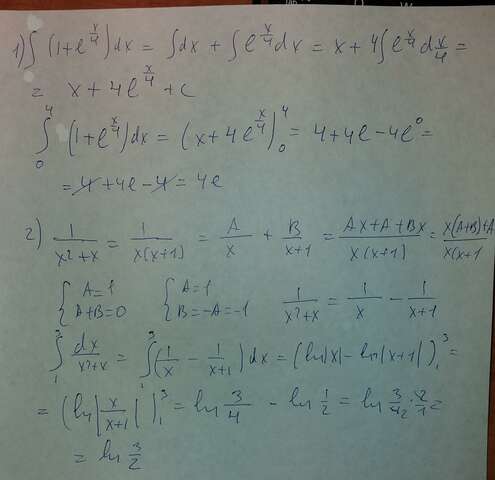 1) ∫ (1+e^{x/4}) dx = ∫dx + ∫e^{x/4} dx = x + 4∫e^{x/4} d x/4 =
= x + 4e^{x/4} + c
∫_0^4 (1+e^{x/4}) dx = (x + 4e^{x/4})_0^4 = 4+4e-4e^0 =
= 4 + 4e - 4 = 4e
2) 1/(x²+x) = 1/(x(x+1)) = A/x + B/(x+1) = (Ax+A+Bx)/(x(x+1)) = (x(A+B)+A)/(x(x+1
{ A=1 { A=1 1/(x²+x) = 1/x - 1/(x+1)
{ A+B=0 { B=-A=-1
∫_1^3 dx/(x²+x) = ∫_1^3 (1/x - 1/(x+1)) dx = (ln|x| - ln|x+1|)_1^3 =
= (ln|x/(x+1)|)_1^3 = ln 3/4 - ln 1/2 = ln 3/4_2 · 2/1 =
= ln 3/2